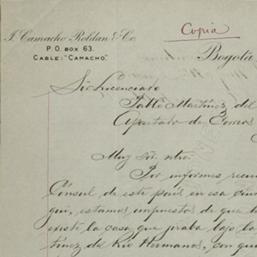 J. Camacho Roldan & Co.
P. O. BOX 63.
CABLE: "CAMACHO"
Copia
Bogotá,
Sr. Licenciado
Pablo Martínez del
Apartado de Correos
Muy Sr. ntro:
Por informes
Cónsul de este país en esa
qui, estamos impuestos de que
existe la casa que jiraba bajo la
tínez del Río Hermanos, con